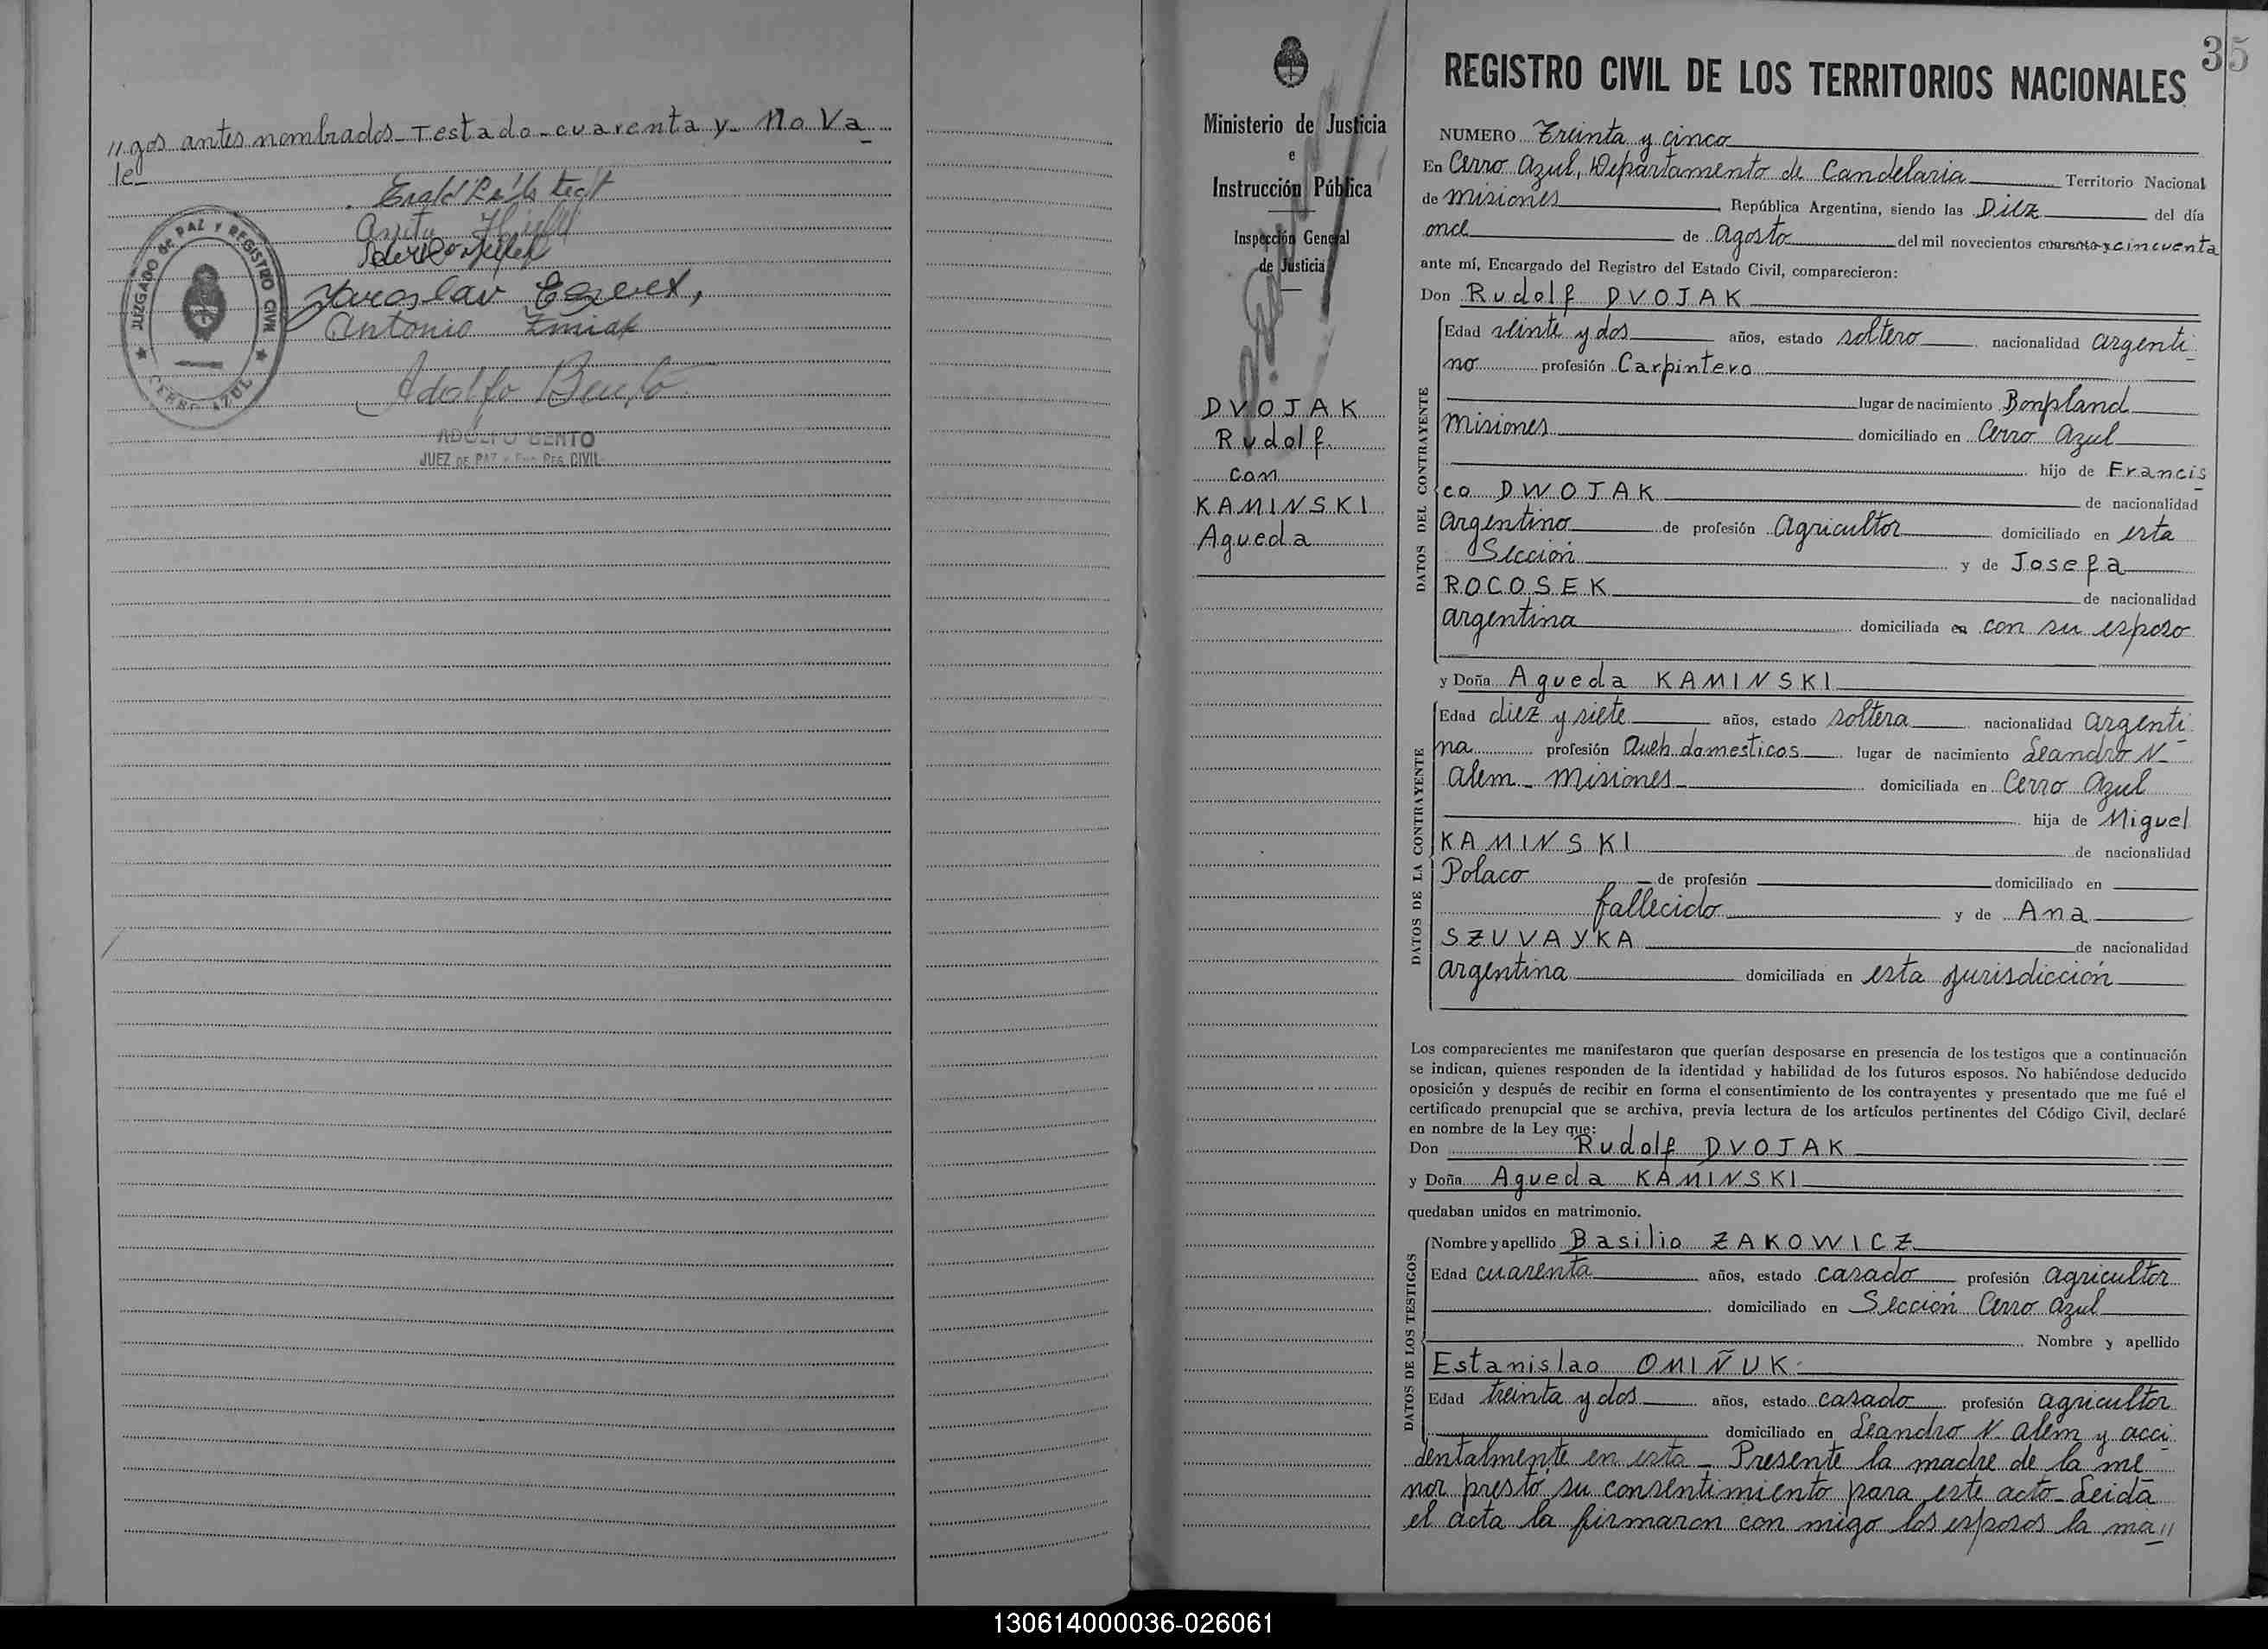 "gos antes nombrados - Testado - cuarenta y - No Va
le -
Anita
Antonio
Adolfo Bento
JUZGADO de PAZ Y REGISTRO CIVIL
CERRO AZUL
ADOLFO BENTO
JUEZ DE PAZ REG. CIVIL
Ministerio de Justicia
e
Instrucción Pública
Inspección General
de Justicia
DVOJAK
Rudolf
con
KAMINSKI
Agueda
35
REGISTRO CIVIL DE LOS TERRITORIOS NACIONALES
NUMERO Treinta y cinco
En Cerro Azul, Departamento de Candelaria Territorio Nacional
de Misiones República Argentina, siendo las Diez del día
once de Agosto del mil novecientos cuarenta y cincuenta
ante mí, Encargado del Registro del Estado Civil, comparecieron:
Don Rudolf DVOJAK
DATOS DEL CONTRAYENTE
Edad veinte y dos años, estado soltero nacionalidad argenti
no profesión Carpintero
lugar de nacimiento Bonpland
Misiones domiciliado en Cerro Azul
hijo de Francis
co DWOJAK de nacionalidad
argentino de profesión agricultor domiciliado en esta
Sección y de Josefa
ROCOSEK de nacionalidad
argentina domiciliada en con su esposo
y Doña Agueda KAMINSKI
DATOS DE LA CONTRAYENTE
Edad diez y siete años, estado soltera nacionalidad argenti
na profesión Queh. domesticos lugar de nacimiento Leandro N
Alem - Misiones - domiciliada en Cerro Azul
hija de Miguel
KAMINSKI de nacionalidad
Polaco de profesión domiciliado en
fallecido y de Ana
SZUVAYKA de nacionalidad
argentina domiciliada en esta jurisdicción
Los comparecientes me manifestaron que querían desposarse en presencia de los testigos que a continuación
se indican, quienes responden de la identidad y habilidad de los futuros esposos. No habiéndose deducido
oposición y después de recibir en forma el consentimiento de los contrayentes y presentado que me fué el
certificado prenupcial que se archiva, previa lectura de los artículos pertinentes del Código Civil, declaré
en nombre de la Ley que:
Don Rudolf DVOJAK
y Doña Agueda KAMINSKI
quedaban unidos en matrimonio.
DATOS DE LOS TESTIGOS
Nombre y apellido Basilio ZAKOWICZ
Edad cuarenta años, estado casado profesión agricultor
domiciliado en Sección Cerro Azul
Nombre y apellido
Estanislao OMIÑUK
Edad treinta y dos años, estado casado profesión agricultor
domiciliado en Leandro N. Alem y acci
dentalmente en esta - Presente la madre de la me
nor prestó su consentimiento para este acto - Leida
el acta la firmaron con migo los esposos la ma"
130614000036-026061